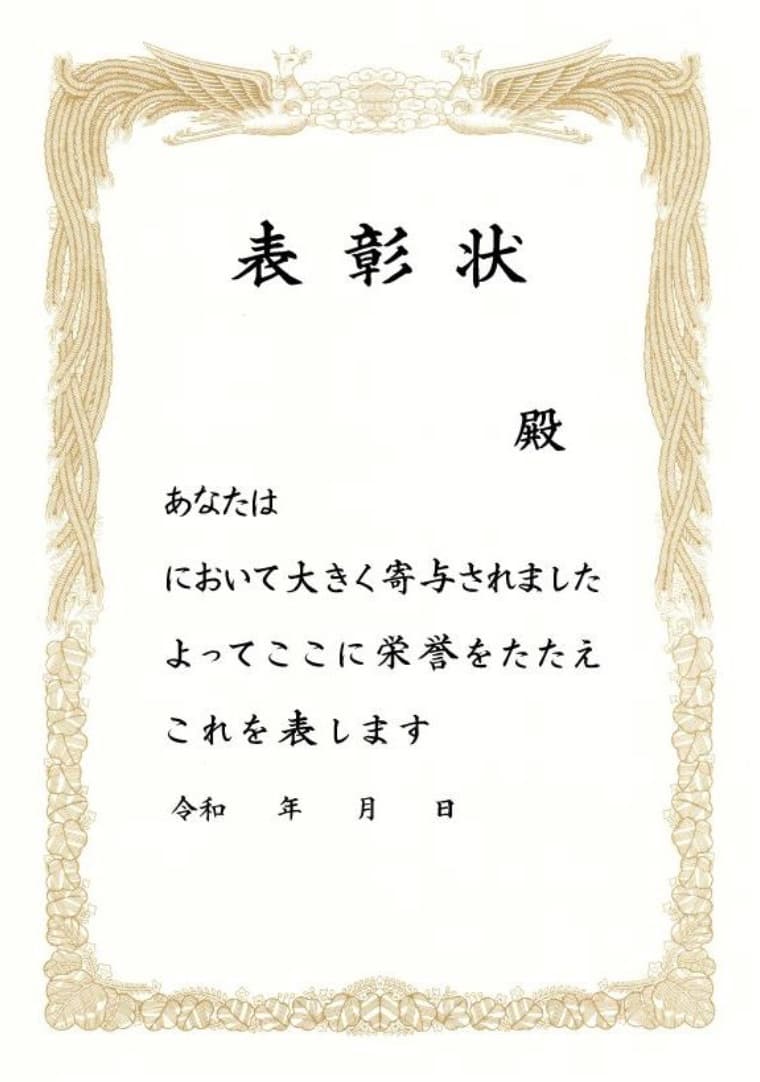 表彰状
殿
あなたは
において大きく寄与されました
よってここに栄誉をたたえ
これを表します
令和 年 月 日